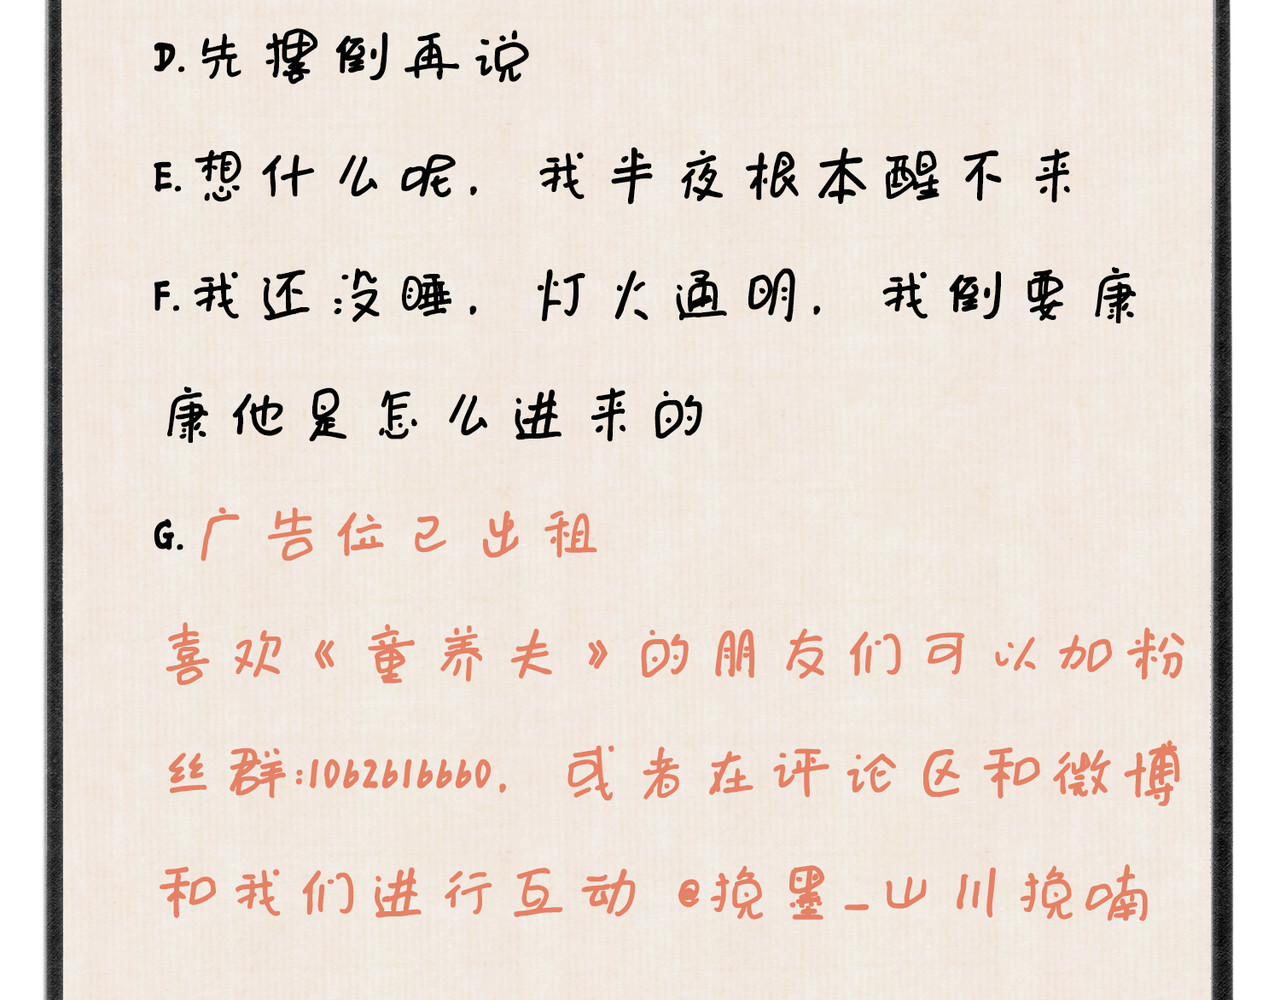 D.先撂倒再说
E.想什么呢，我半夜根本醒不来
F.我还没睡，灯火通明，我倒要康
康他是怎么进来的
G.广告位已出租
喜欢《童养夫》的朋友们可以加粉
丝群:1062616660，或者在评论区和微博
和我们进行互动 @挽墨_山川挽喃